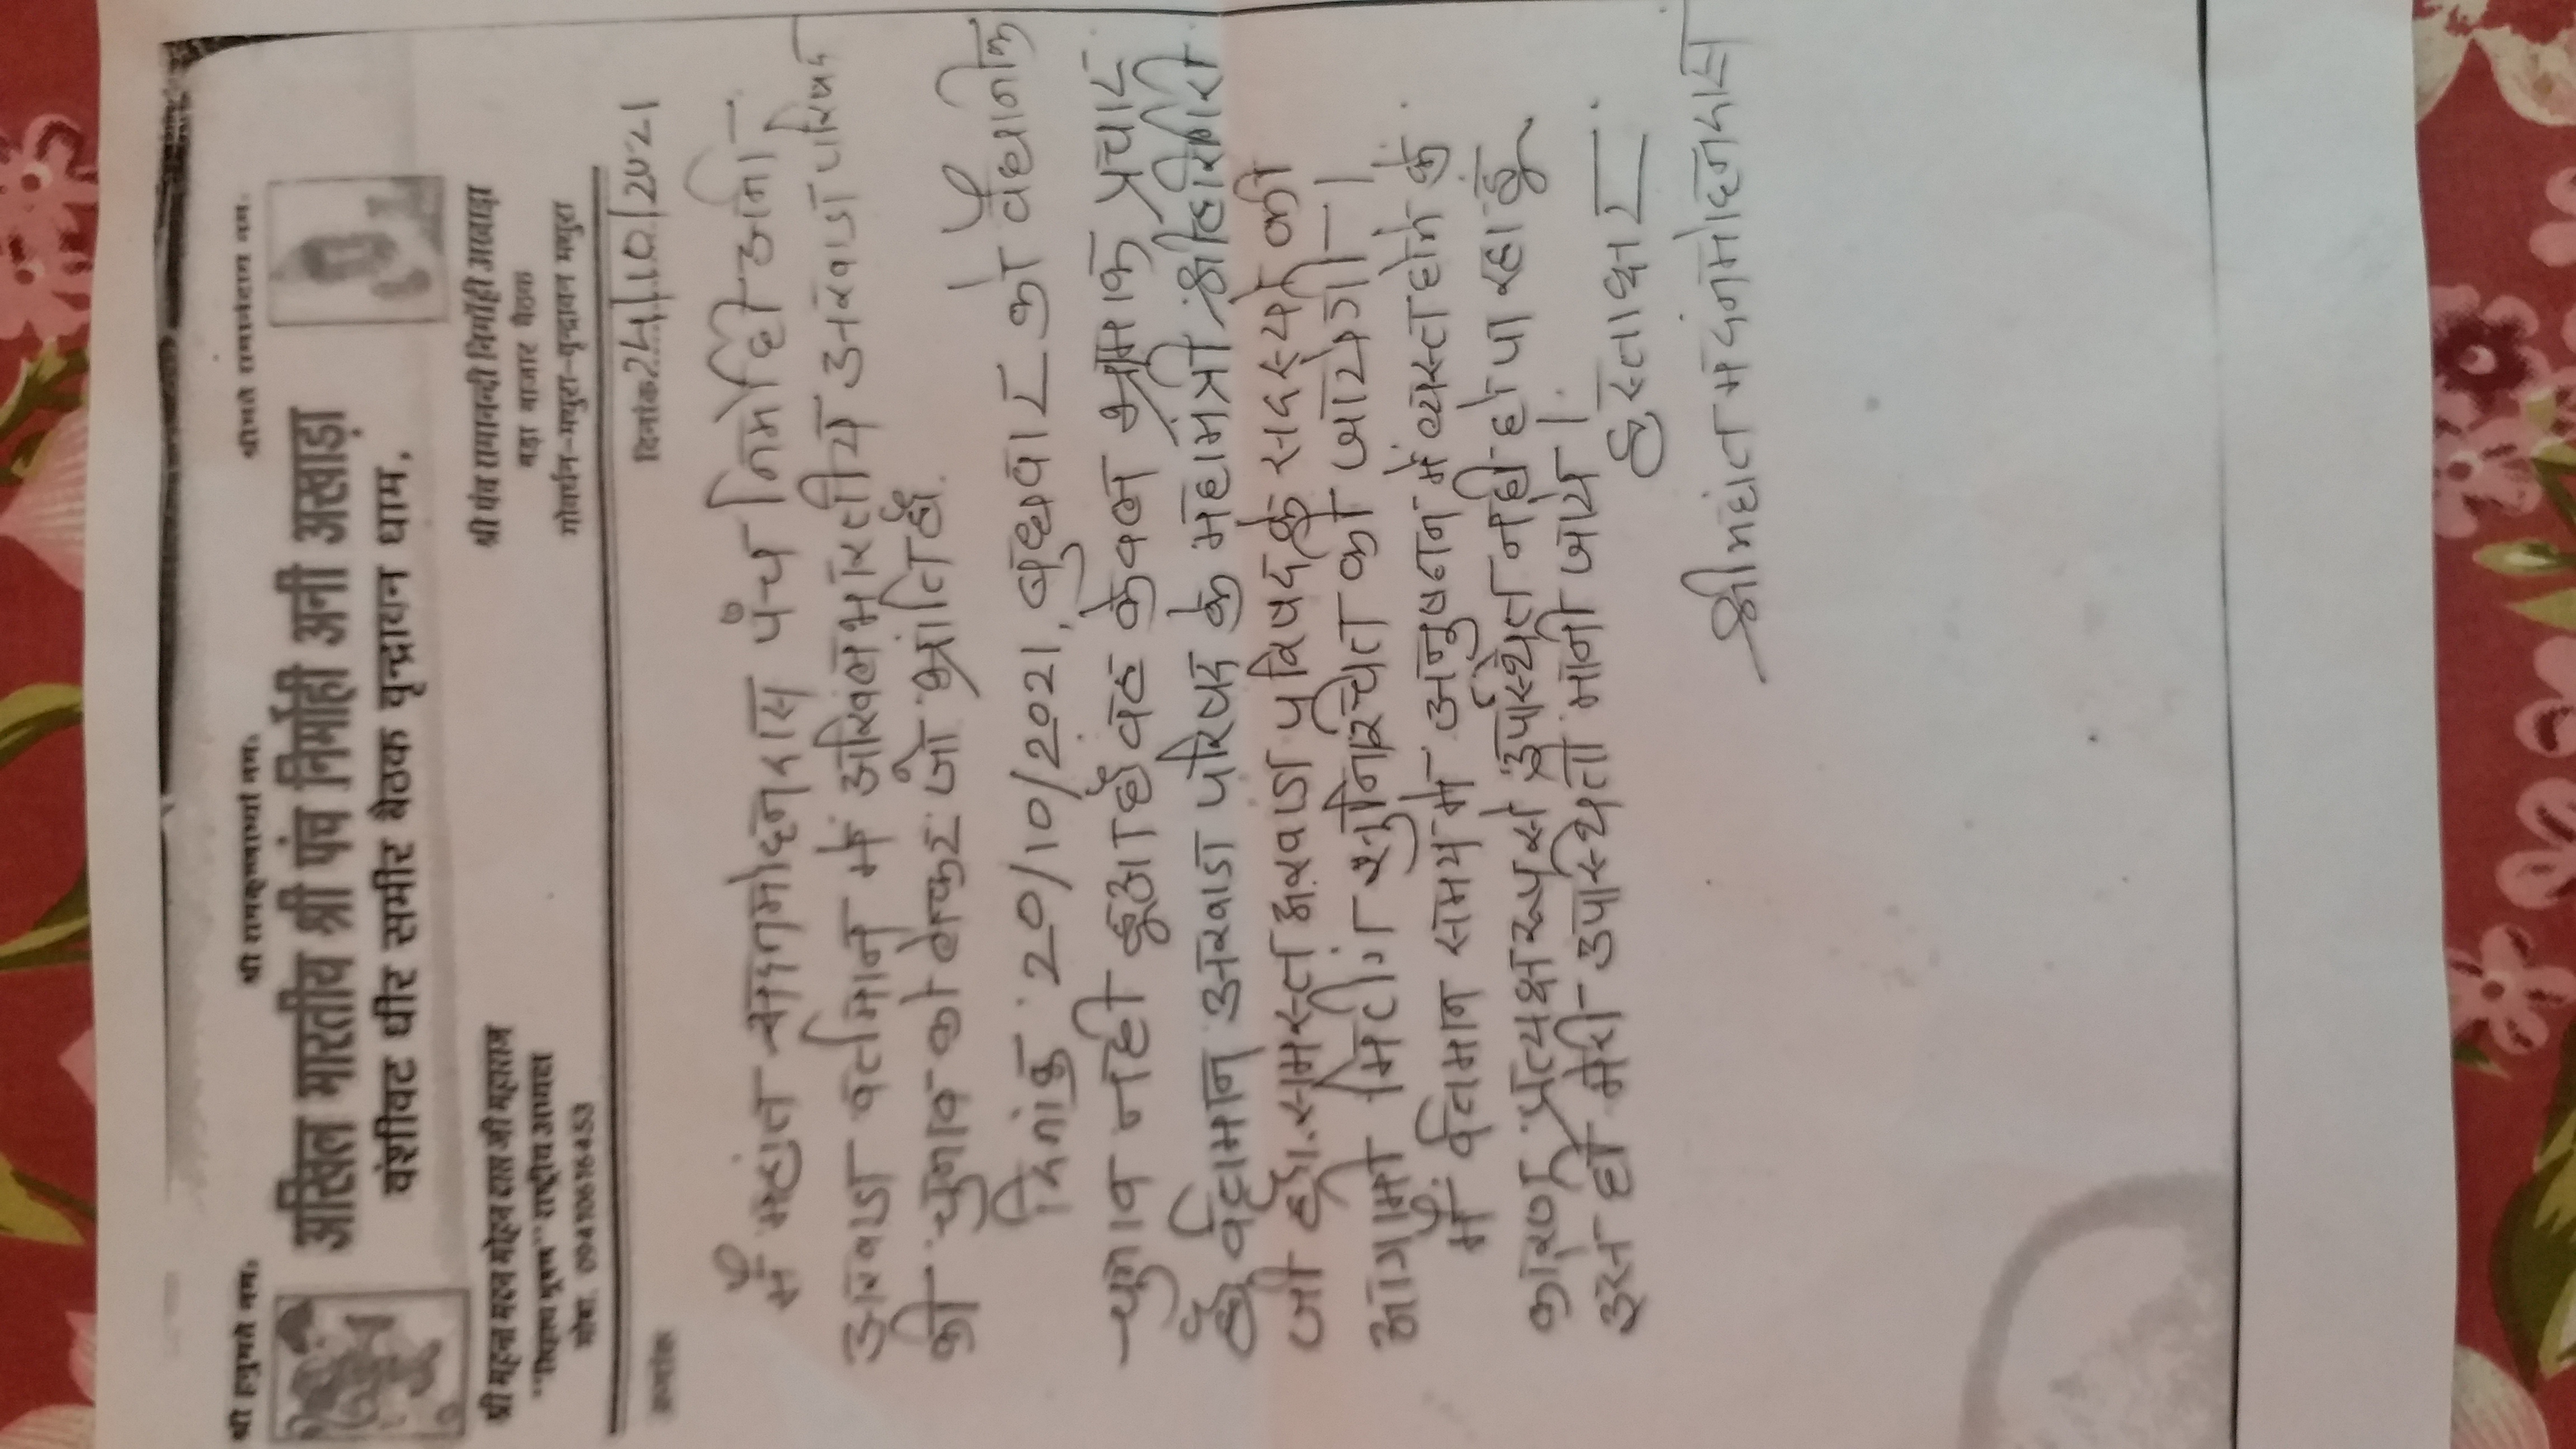 श्री हनुमते नमः श्री रामकृष्णाभ्यां नमः श्रीमते रामानंदाय नमः
अखिल भारतीय श्री पंच निर्मोही अनी अखाड़ा
वंशीवट धीर समीर बैठक वृन्दावन धाम.
श्री महन्त मदन मोहन दास जी महाराज
राष्ट्रीय अध्यक्ष
मोबा. 09410616453
श्री पंच रामानन्दी निर्मोही अखाड़ा
बड़ा बाजार बैठक
गोवर्धन-मथुरा-वृन्दावन मथुरा
क्रमांक दिनांक 24/10/2021
मैं महंत मदनमोहनदास पंच निर्मोही अनी
अखाडा वर्तमान में अखिल भारतीय अखाडा परिषद
की चुनाव को लेकर जो भ्रांति है.
दिनांक 20/10/2021, बुधवार को वैधानिक
चुनाव नही हुआ है वह केवल भ्रामक प्रचार
है वर्तमान अखाडा परिषद के महामंत्री श्री हरि गिरी
जी है. समस्त अखाडा परिषद के सदस्यो की
आगामी मिटींग सुनिश्चित की जायेगी।
मैं वर्तमान समय में अनुष्ठान में व्यस्त होने के
कारण प्रत्यक्ष रूप से उपस्थित नही हो पा रहा हूँ
इसे ही मेरी उपस्थिती मानी जाये।
हस्ताक्षर
श्री महंत मदनमोहनदास